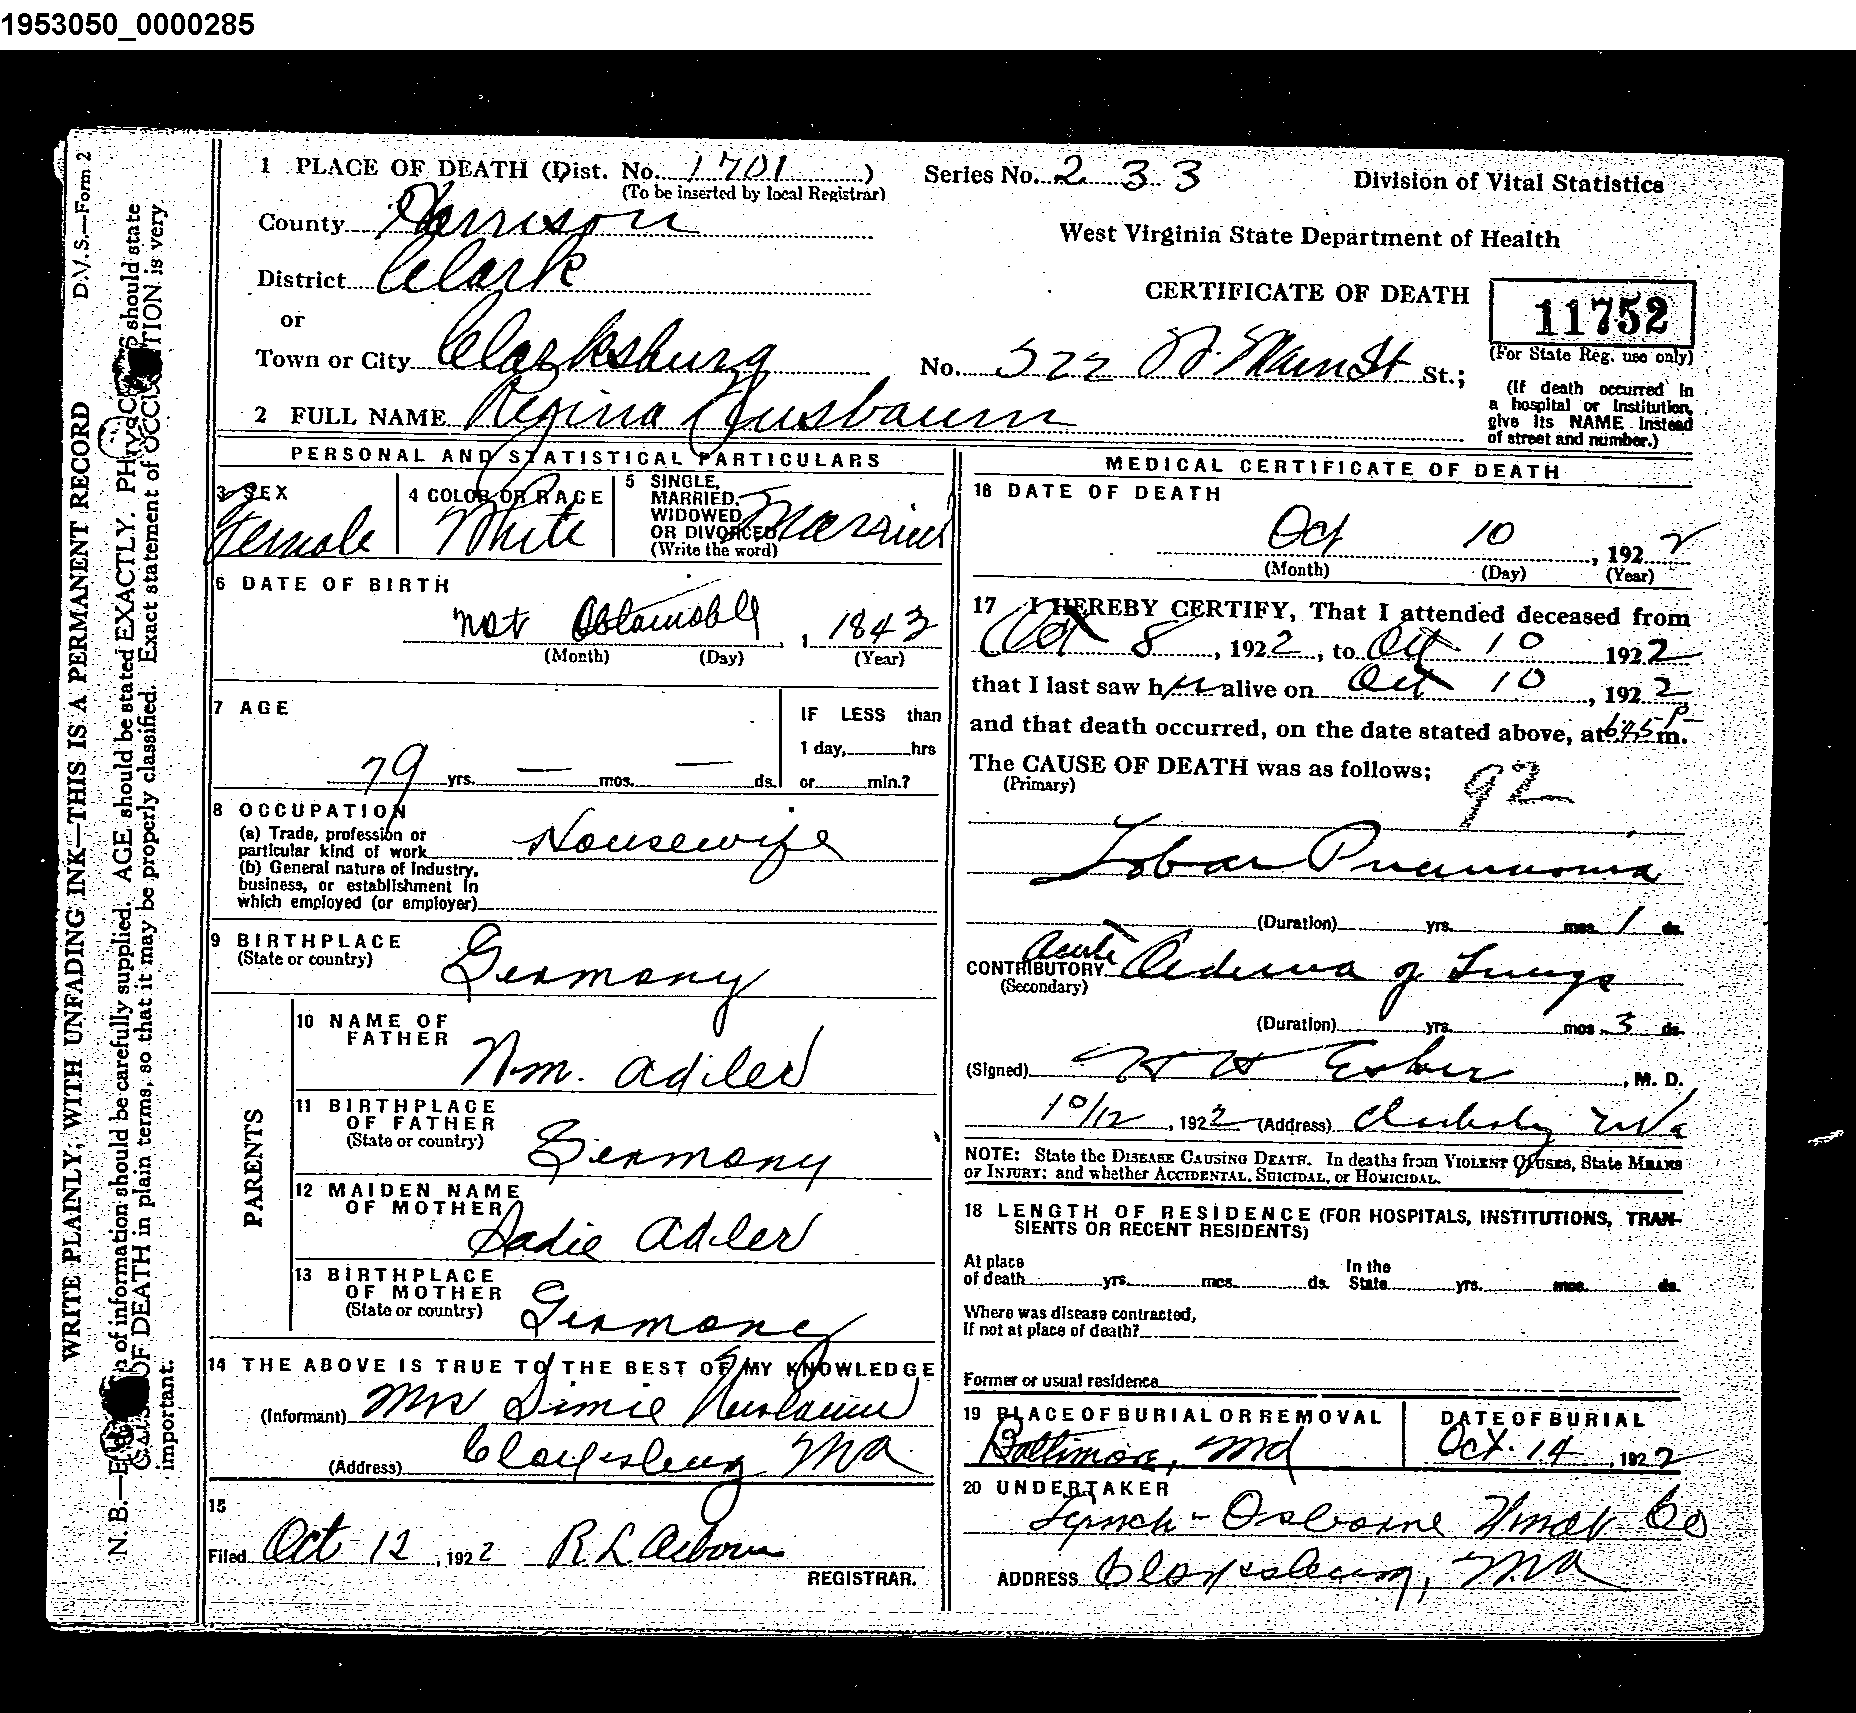 1953050_0000285
D.V.S.—Form 2
WRITE PLAINLY, WITH UNFADING INK—THIS IS A PERMANENT RECORD
N. B.— of information should be carefully supplied. AGE should be stated EXACTLY. should state
OF DEATH in plain terms, so that it may be properly classified. Exact statement of is very
important.
1 PLACE OF DEATH (Dist. No. 1701 )
(To be inserted by local Registrar)
Series No. 233
Division of Vital Statistics
County Harrison
West Virginia State Department of Health
District Clark
CERTIFICATE OF DEATH
11752
(For State Reg. use only)
or
Town or City Clarksburg
No. 522 W. Main St St.;
(If death occurred in
a hospital or Institution,
give its NAME instead
of street and number.)
2 FULL NAME Regina Nusbaum
PERSONAL AND STATISTICAL PARTICULARS
3 SEX
Female
4 COLOR OR RACE
White
5 SINGLE,
MARRIED,
WIDOWED
OR DIVORCED
(Write the word)
Married
6 DATE OF BIRTH
not Obtainable, 1843
(Month) (Day) (Year)
7 AGE
79 yrs. — mos. — ds.
IF LESS than
1 day, hrs
or min.?
8 OCCUPATION
(a) Trade, profession or
particular kind of work Housewife
(b) General nature of Industry,
business, or establishment in
which employed (or employer)
9 BIRTHPLACE
(State or country)
Germany
PARENTS
10 NAME OF
FATHER
Wm. Adler
11 BIRTHPLACE
OF FATHER
(State or country)
Germany
12 MAIDEN NAME
OF MOTHER
Sadie Adler
13 BIRTHPLACE
OF MOTHER
(State or country)
Germany
14 THE ABOVE IS TRUE TO THE BEST OF MY KNOWLEDGE
(Informant) Mrs Nusbaum
(Address) Clarksburg WVa
15
Filed Oct 12, 1922 R L Osborn
REGISTRAR.
MEDICAL CERTIFICATE OF DEATH
16 DATE OF DEATH
Oct 10, 1922
(Month) (Day) (Year)
17 I HEREBY CERTIFY, That I attended deceased from
Oct 8, 1922, to Oct 10 1922
that I last saw her alive on Oct 10, 1922
and that death occurred, on the date stated above, at 6:45 P m.
The CAUSE OF DEATH was as follows;
(Primary)
92
Lobar Pneumonia
(Duration) yrs. mos. 1 ds.
CONTRIBUTORY Acute Oedema of Lungs
(Secondary)
(Duration) yrs. mos. 3 ds.
(Signed) H H Esker, M. D.
10/12, 1922 (Address) Clarksbg WVa
NOTE: State the DISEASE CAUSING DEATH. In deaths from VIOLENT CAUSES, State MEANS
OF INJURY; and whether ACCIDENTAL, SUICIDAL, or HOMICIDAL.
18 LENGTH OF RESIDENCE (FOR HOSPITALS, INSTITUTIONS, TRAN-
SIENTS OR RECENT RESIDENTS)
At place
of death yrs. mos. ds.
In the
State yrs. mos. ds.
Where was disease contracted,
If not at place of death?
Former or usual residence
19 PLACE OF BURIAL OR REMOVAL
Baltimore, Md
DATE OF BURIAL
Oct. 14, 1922
20 UNDERTAKER
Lynch-Osborne Co
ADDRESS Clarksburg, WVa